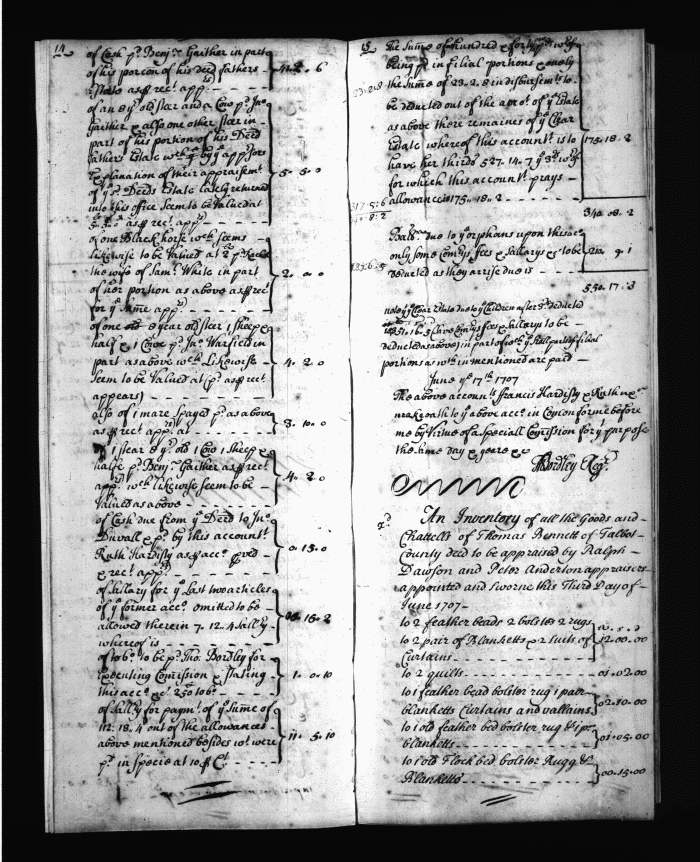 14
of Cash pd. Benj: Gaither in part
of his porcon of his decd fathers
Estate as ₱ rect. appr.
4 . 2 . 6
of an 8 yr. old stear and a Cow pd. Jno.
Gaither & also one other stear in
part of his portion of his Decd
fathers Estate
Explanation of their appraisemt
of ye sd. Decds Estate lately returned
into this office Seem to be Valued at
as ₱ rect appr.
5 . 5 . 0
of one Black horse wch. seems
Likewise to be Valued at
the wife of Sam: White in part
of her portion as above as ₱ rect
for ye same appr.
2 . 0 . 0
of one old 8 year old steer 1 sheep &
half & 1 Cowe pd. Jno. Warfield in
part as above wch. Likewise
Seem to be Valued at (pd. as ₱ rect
appears)
4 . 2 . 0
also of 1 mare Spayed pd. as above
as ₱ rect appr. at
3 . 10 . 0
of 1 stear 8 yr. old 1 Cow 1 Sheep &
halfe pd. Benj: Gaither as ₱ rect
appr. wch. Likewise seem to be
Valued as above
4 . 2 . 0
of Cash due from ye Decd to Jno.
Duvall & pd. by this accountt
Ruth Hardisty as ₱ acct. ₱ved
& rect appr.
0 . 15 . 0
of Sallary for ye Last two articles
of ye former acct. omitted to be
allowed therein 7 . 12 . 4 Sally
whereof is
16 . 2
of tobo. to be pd. Tho: Bordley for
Executing Comission & stating
this acct. &c. 250 tobo.
1 . 0 . 10
of Sally for paymt. of ye Sume of
112 : 18 . 4 out of the allowances
above mentioned besides wt. were
pd. in Specie at 10 ₱ Ct.
11 . 5 . 10
15
The Sume of hundred & forty
being pd in filial portions & only
the Sume of 23 . 2 . 8 in disbursemts. to
be deducted out of the
as above there remaines of ye Clear
Estate whereof this accountt is to
have her thirds 527 . 14 . 7 ye 3d. is of
for which this accountt prays
allowance is 175 . 18 . 2
175 . 18 . 2
340 . 08 . 2
Ball. due to ye orphans upon this acct
only some Comys. fees & Sallarys &c to be
deducted as they arrise due is
210 . 9 . 1
550 . 17 . 3
note ye Clear Estate due to ye Children after 3d. deducted
Comys fees & Sallarys to be
deducted as above) in part of wch. ye Hall party filial
portions as wth. in mentioned are paid
June ye 17th 1707
The above accountt Francis Hardisty & Ruth ux
make oath to ye above acct. in Comon forme before
me by Virtue of a Speciall Comission for ye purpose
the same day & yeare &c
TBordley Regr.
An Inventory of all the Goods and
Chattells of Thomas Bennett of Talbot
County decd to be appraised by Ralph
Dawson and Peter Anderton appraisers
appointed and sworne this Third Day of
June 1707
to 2 feather beads 2 bolsters 2 rugs
to 2 pair of Blanketts & 2 Suits of
Curtains
12 . 00 . 00
to 2 quilts
01 . 02 . 00
to 1 feather bead bolster rug 1 pair
blanketts Curtains and vallains
02 . 10 . 00
to 1 old feather bed bolster rug & 1 pr
blanketts
01 . 05 . 00
to 1 old Flock bed bolster Rugg &
Blanketts
00 . 15 . 00